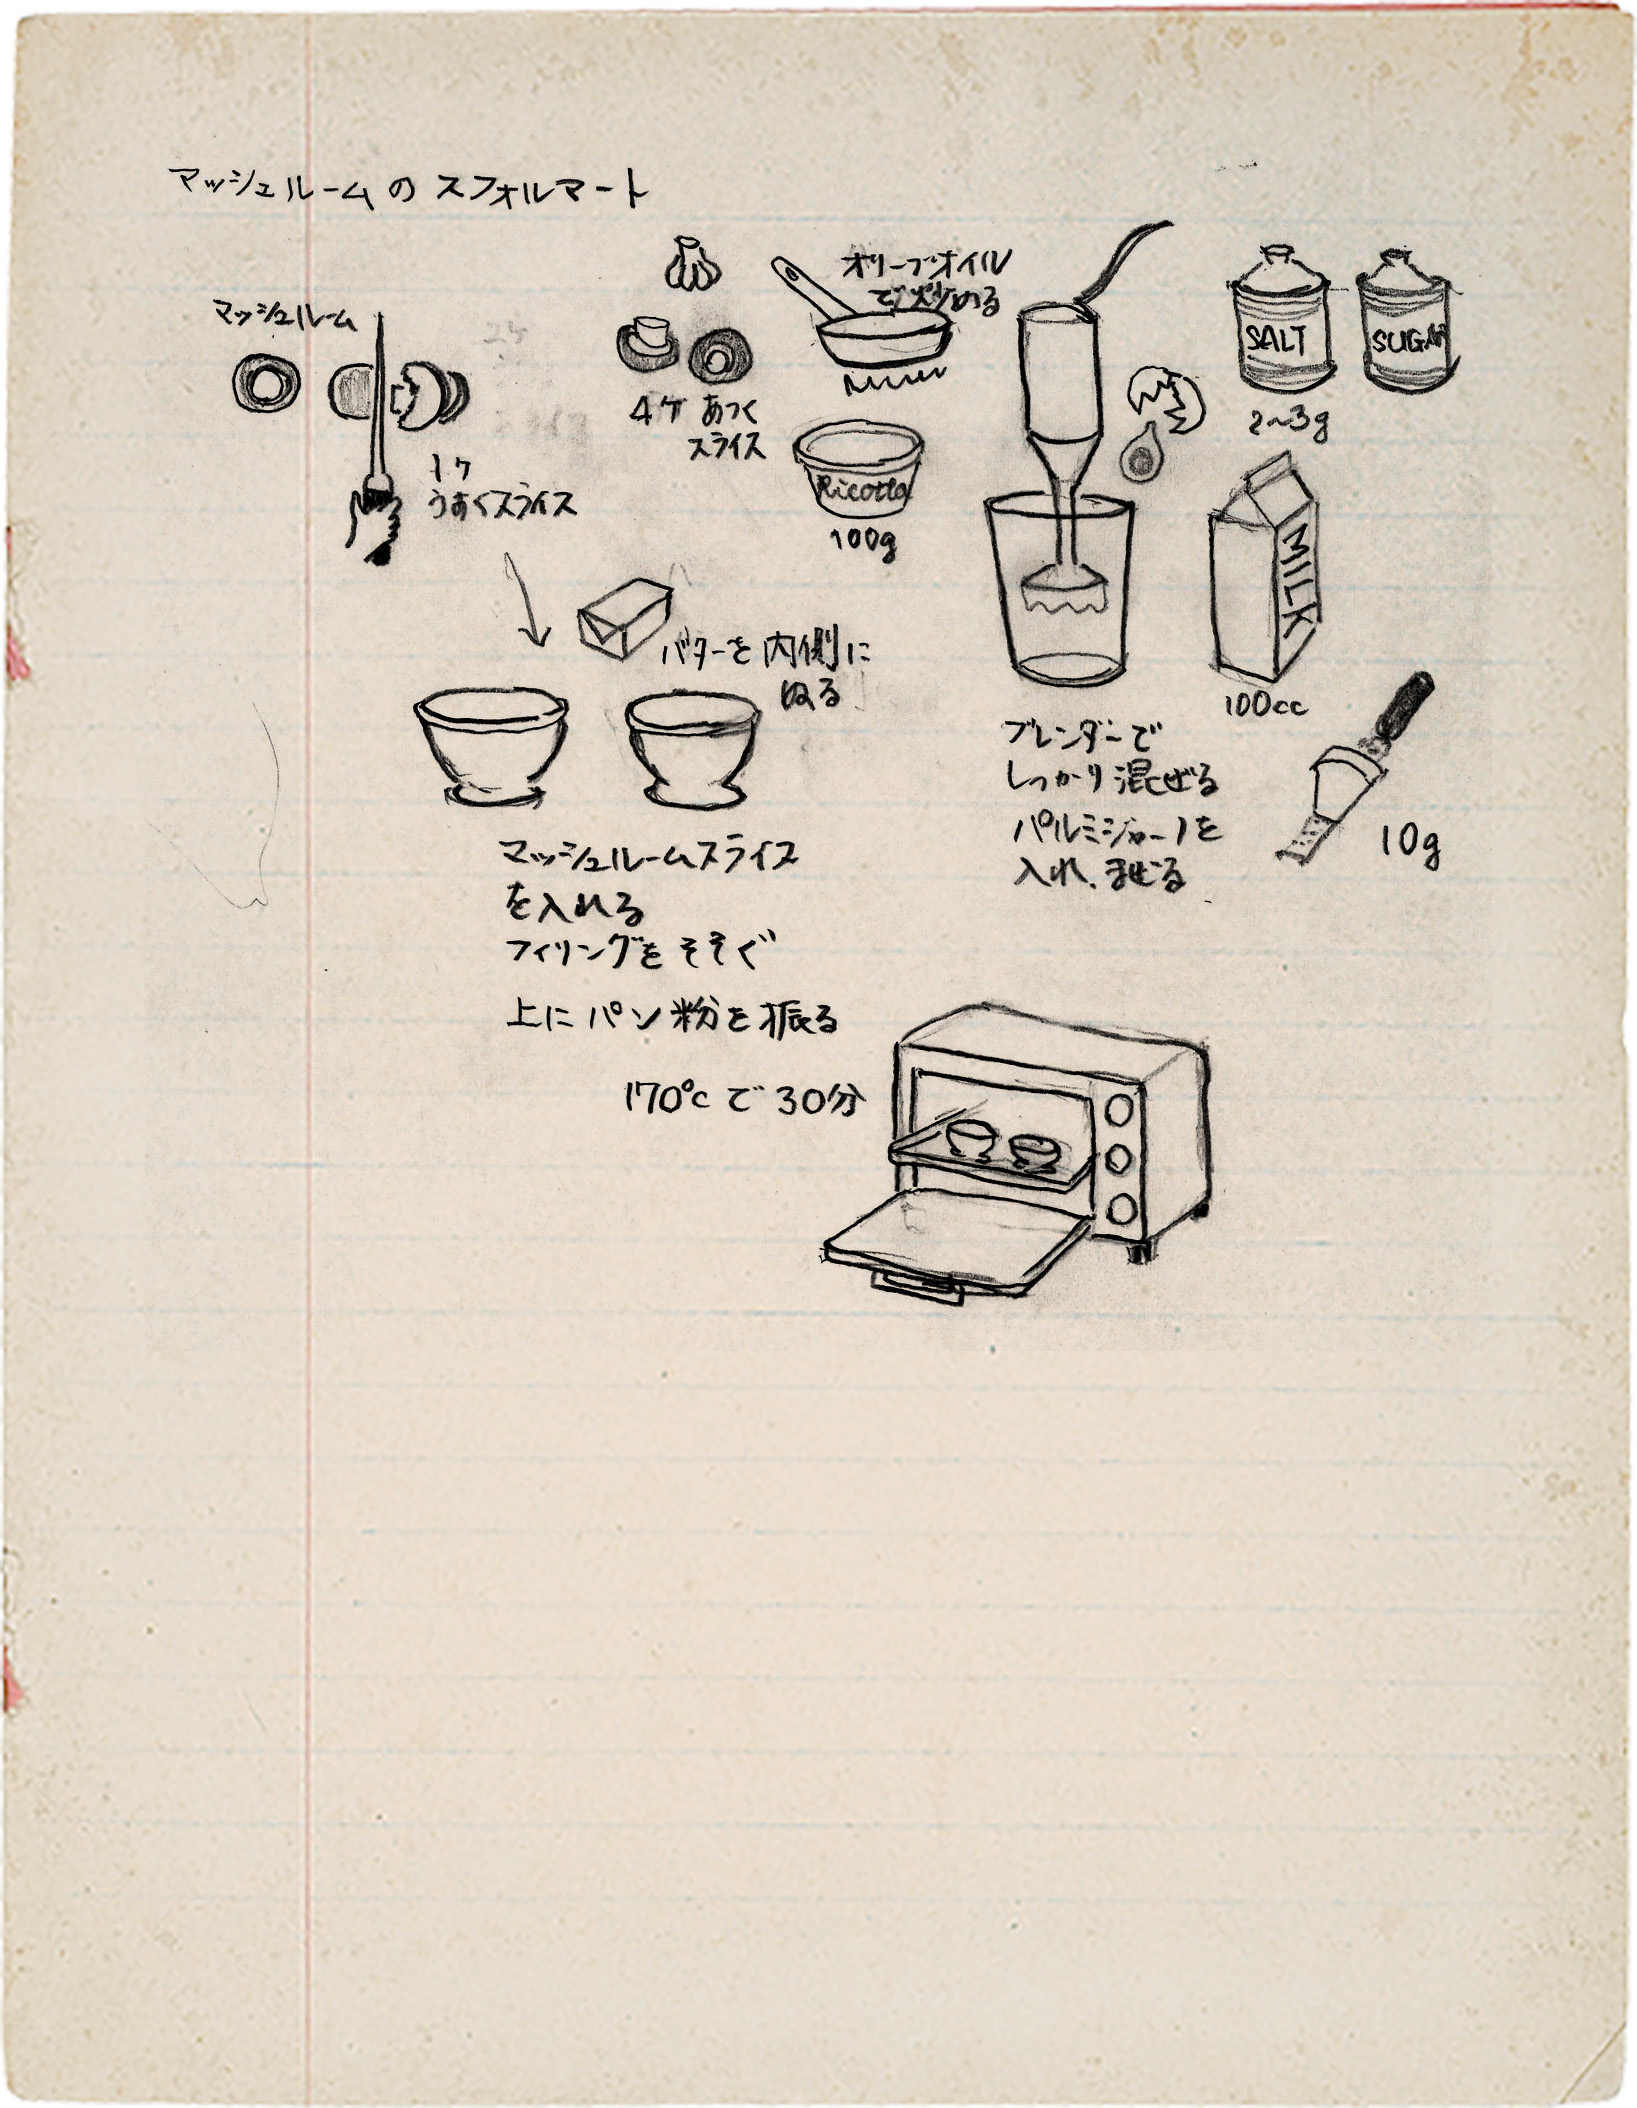 マッシュルームの スフォルマート
マッシュルーム
1ケ
うすくスライス
4ケ あつく
スライス
オリーブオイル
で炒める
Ricotta
100g
SALT
2~3g
SUGAR
MILK
100cc
バターを内側に
ぬる
ブレンダーで
しっかり混ぜる
パルミジャーノを
入れ、まぜる
10g
マッシュルームスライス
を入れる
フィリングをそそぐ
上にパン粉を振る
170℃で30分